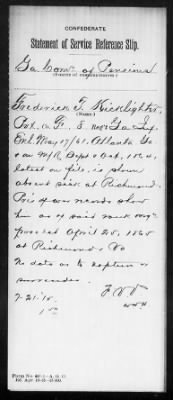 CONFEDERATE
Statement of Service Reference Slip.
Ga Com'r of Pensions
Frederick T. Kicklighter
(Name.)
Pvt. Co F. 8 Regt Ga Inf.
Enl. May 17/61. Atlanta Ga
on M/R Sept & Oct, 1864,
latest on file, is shown
absent sick at Richmond.
Pris of war records show
him as of said
paroled April 25, 1865
at Richmond, Va
No data as to capture or
surrender.
7-21-15.